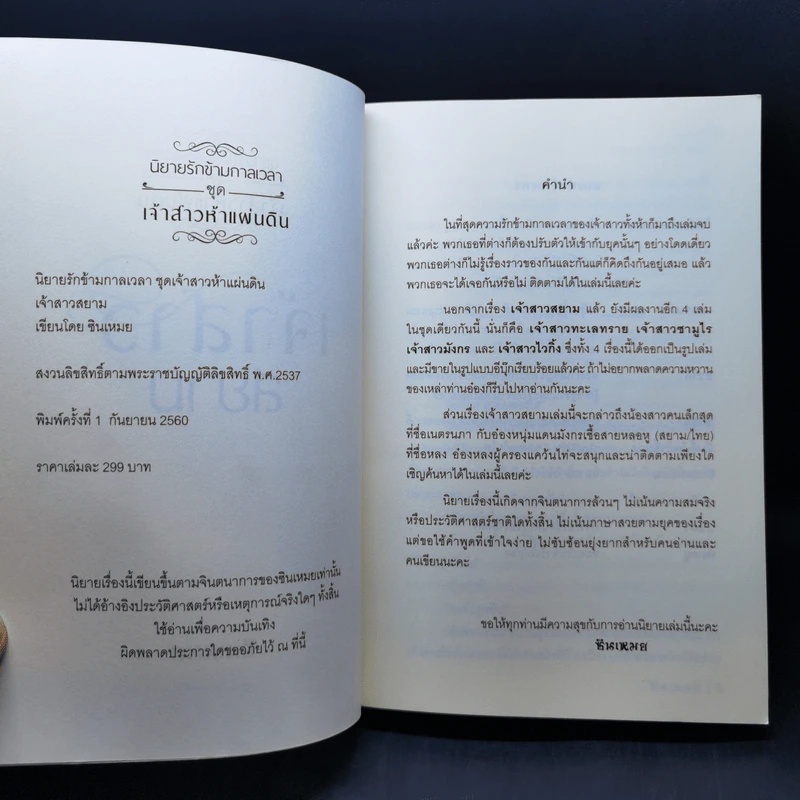 นิยายรักข้ามกาลเวลา
ชุด
เจ้าสาวห้าแผ่นดิน
นิยายรักข้ามกาลเวลา ชุดเจ้าสาวห้าแผ่นดิน
เจ้าสาวสยาม
เขียนโดย ซินเหมย
สงวนลิขสิทธิ์ตามพระราชบัญญัติลิขสิทธิ์ พ.ศ.2537
พิมพ์ครั้งที่ 1 กันยายน 2560
ราคาเล่มละ 299 บาท
นิยายเรื่องนี้เขียนขึ้นตามจินตนาการของซินเหมยเท่านั้น
ไม่ได้อ้างอิงประวัติศาสตร์หรือเหตุการณ์จริงใดๆ ทั้งสิ้น
ใช้อ่านเพื่อความบันเทิง
ผิดพลาดประการใดขออภัยไว้ ณ ที่นี้
คำนำ
ในที่สุดความรักข้ามกาลเวลาของเจ้าสาวทั้งห้าก็มาถึงเล่มจบ
แล้วค่ะ พวกเธอที่ต่างก็ต้องปรับตัวให้เข้ากับยุคนั้นๆ อย่างโดดเดี่ยว
พวกเธอต่างก็ไม่รู้เรื่องราวของกันและกันแต่ก็คิดถึงกันอยู่เสมอ แล้ว
พวกเธอจะได้เจอกันหรือไม่ ติดตามได้ในเล่มนี้เลยค่ะ
นอกจากเรื่อง เจ้าสาวสยาม แล้ว ยังมีผลงานอีก 4 เล่ม
ในชุดเดียวกันนี้ นั่นก็คือ เจ้าสาวทะเลทราย เจ้าสาวซามูไร
เจ้าสาวมังกร และ เจ้าสาวไวกิ้ง ซึ่งทั้ง 4 เรื่องนี้ได้ออกเป็นรูปเล่ม
และมีขายในรูปแบบอีบุ๊กเรียบร้อยแล้วค่ะ ถ้าไม่อยากพลาดความหวาน
ของเหล่าท่านอ๋องก็รีบไปหาอ่านกันนะคะ
ส่วนเรื่องเจ้าสาวสยามเล่มนี้จะกล่าวถึงน้องสาวคนเล็กสุด
ที่ชื่อเนตรนภา กับอ๋องหนุ่มแดนมังกรเชื้อสายหลอหู (สยาม/ไทย)
ที่ชื่อหลง อ๋องหลงผู้ครองแคว้นไท่จะสนุกและน่าติดตามเพียงใด
เชิญค้นหาได้ในเล่มนี้เลยค่ะ
นิยายเรื่องนี้เกิดจากจินตนาการล้วนๆ ไม่เน้นความสมจริง
หรือประวัติศาสตร์ชาติใดทั้งสิ้น ไม่เน้นภาษาสวยตามยุคของเรื่อง
แต่ขอใช้คำพูดที่เข้าใจง่าย ไม่ซับซ้อนยุ่งยากสำหรับคนอ่านและ
คนเขียนนะคะ
ขอให้ทุกท่านมีความสุขกับการอ่านนิยายเล่มนี้นะคะ
ซินเหมย